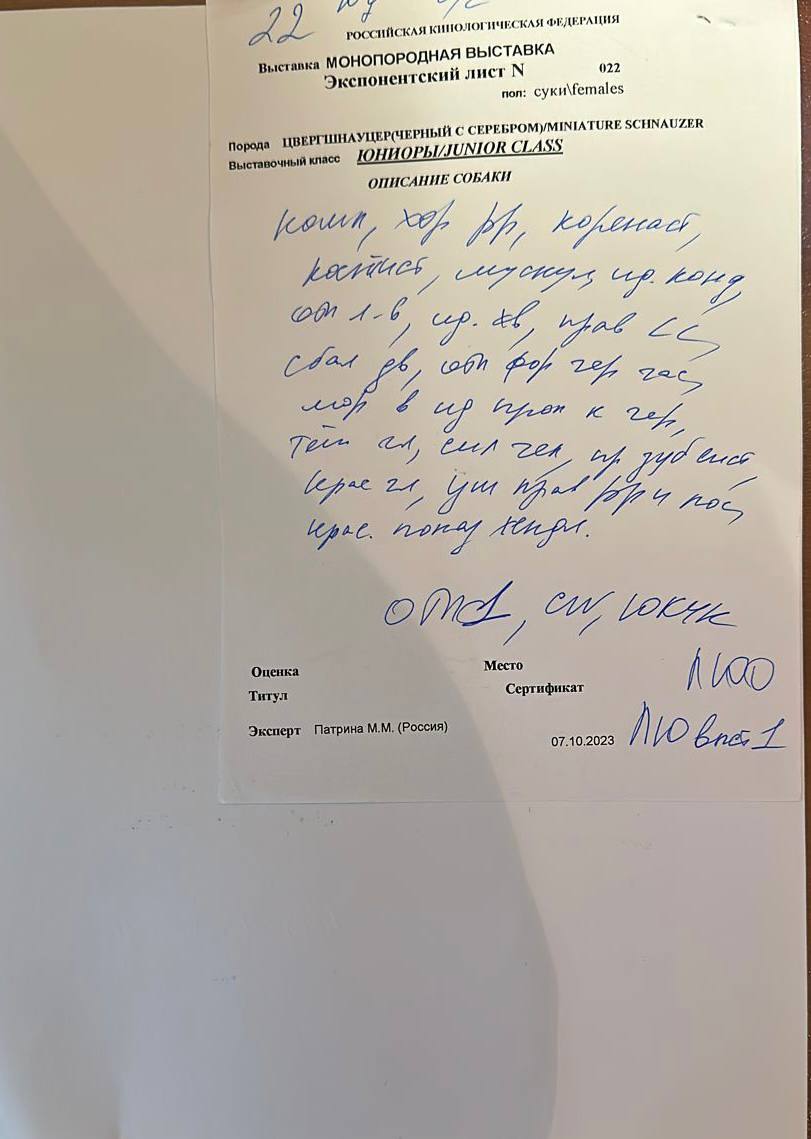 22
РОССИЙСКАЯ КИНОЛОГИЧЕСКАЯ ФЕДЕРАЦИЯ
Выставка МОНОПОРОДНАЯ ВЫСТАВКА
Экспонентский лист N 022
пол: суки\females
Порода ЦВЕРГШНАУЦЕР(ЧЕРНЫЙ С СЕРЕБРОМ)/MINIATURE SCHNAUZER
Выставочный класс ЮНИОРЫ/JUNIOR CLASS
ОПИСАНИЕ СОБАКИ
комп, хор рр, коренаст,
костист, мускул, ид. конд,
отл л-в, ид. хв, прав
сбал дв, отл фор чер час,
мор в ид проп к чер,
тём гл, сил чел, пр зуб сист,
крас гл, уш прав рр и пос,
крас. показ хендл.
ОТЛ1, CW, ЮКЧК
Оценка Место ЛЮО
Титул Сертификат
Эксперт Патрина М.М. (Россия) 07.10.2023 ЛЮ в пст 1